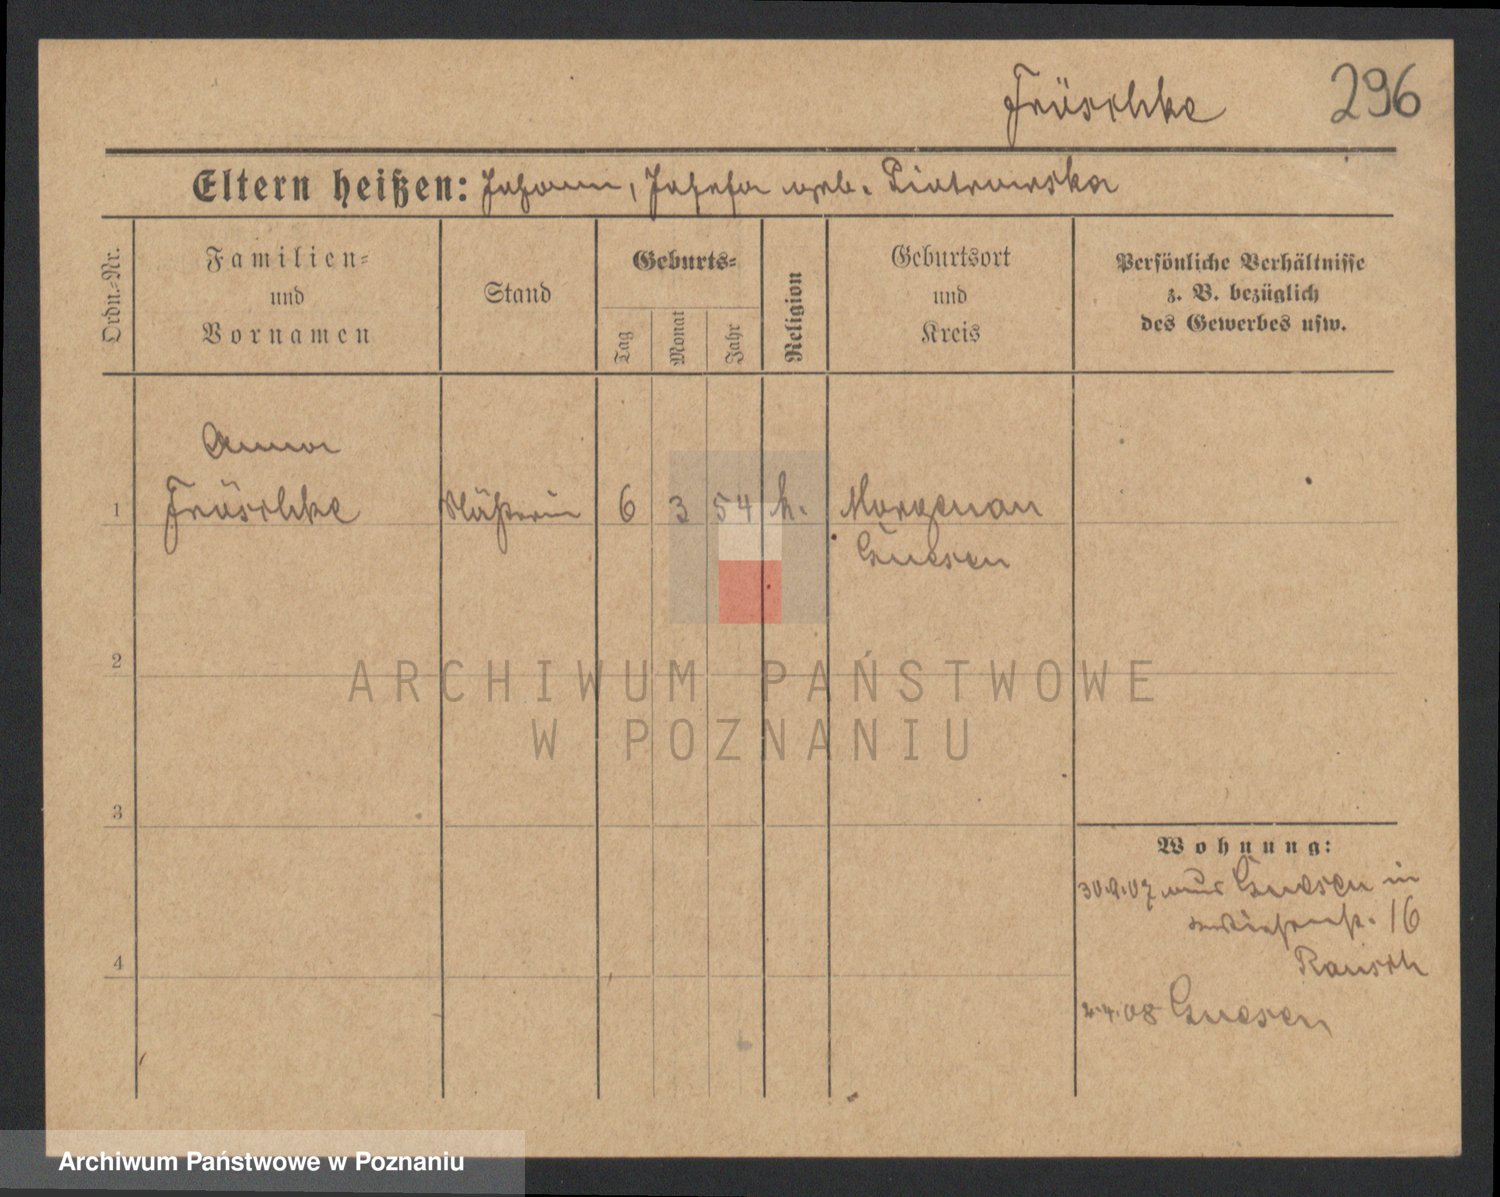 Fröschke 296
Eltern heißen: Johann, Josefa geb. Piotrowska
Ordn.-Nr.
Familien-
und
Vornamen
Stand
Geburts-
Tag
Monat
Jahr
Religion
Geburtsort
und
Kreis
Persönliche Verhältnisse
z. B. bezüglich
des Gewerbes usw.
Anna
1 Fröschke Näherin 6 3 54 k. Morgenau
Gnesen
2
ARCHIWUM PAŃSTWOWE
W POZNANIU
3
Wohnung:
30.9.07 aus Gnesen in
16
4 Rausch
2.4.08 Gnesen
Archiwum Państwowe w Poznaniu